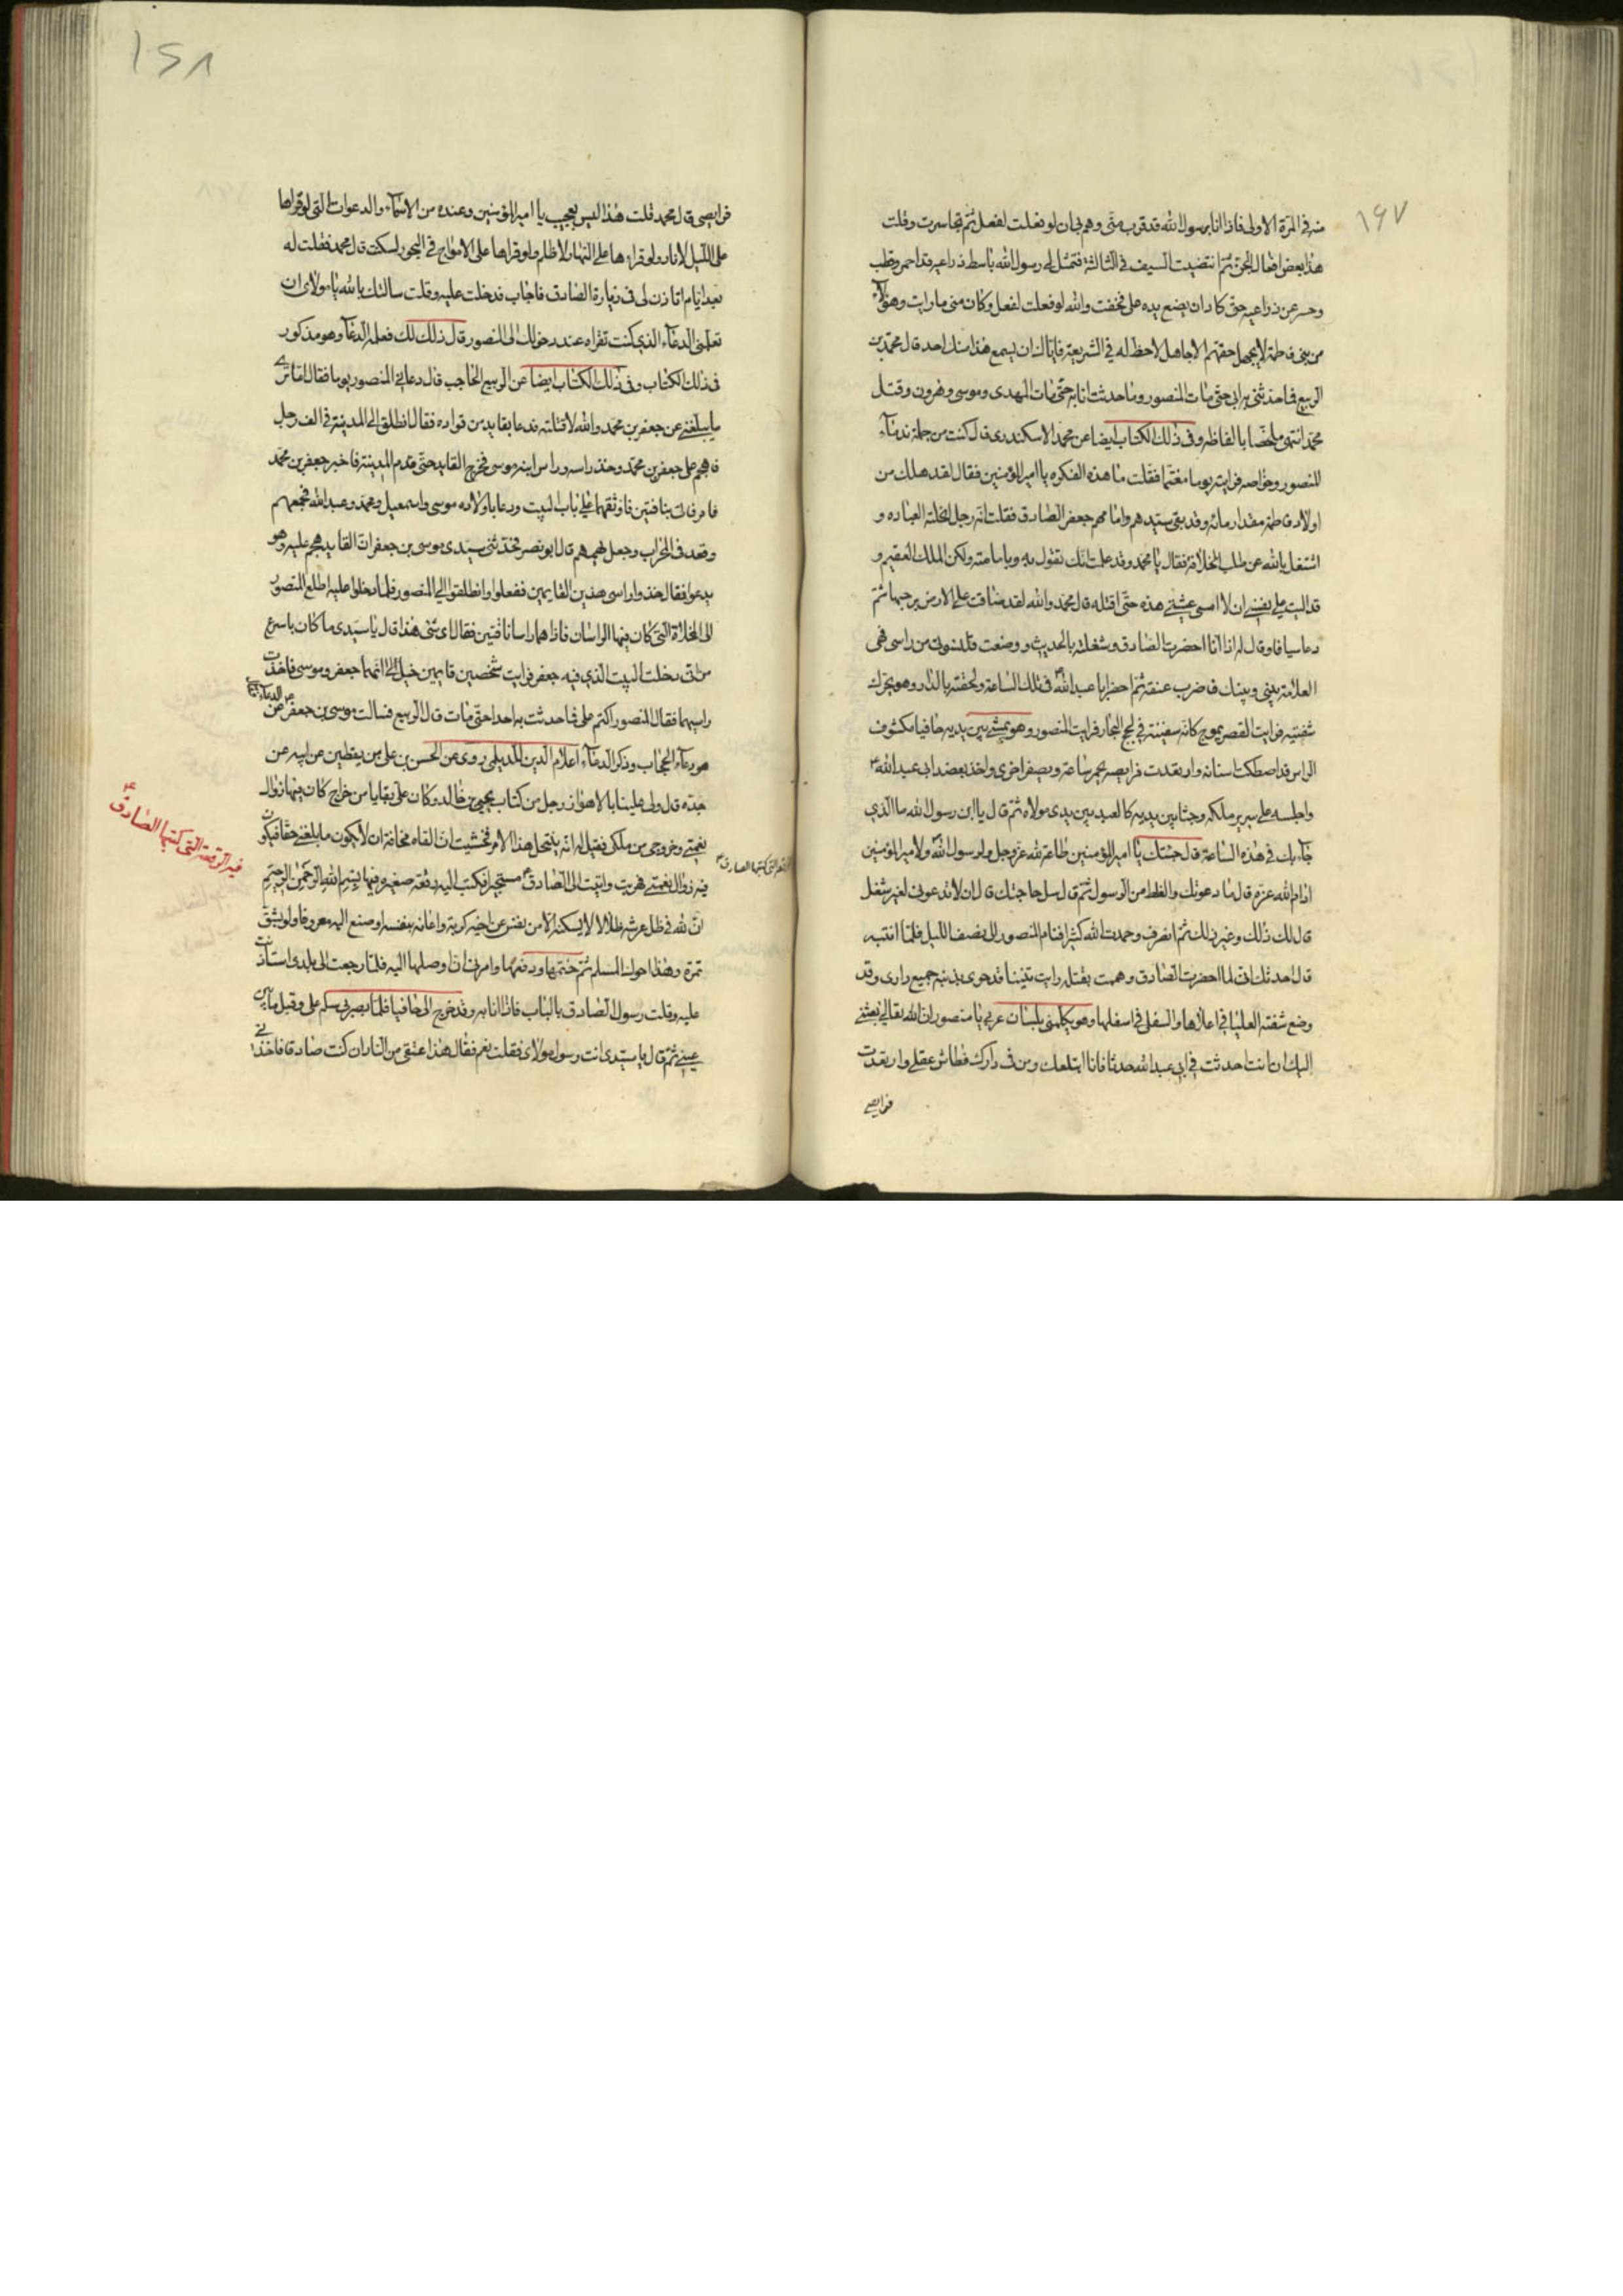 ۱۶۷
منه فی المرة الاولی فاذا انا برسول الله قد قرب منی وهم بی ان لو فعلت لفعل ثم تجاسرت وقلت
هذا بعض افعال الجن ثم انتضیت السیف فی الثالثة فتمثل لی رسول الله باسط ذراعیه قد احمر وقطب
وحسر عن ذراعیه حتی کاد ان یضع یده علی فخفت والله لو فعلت لفعل وکان منی ما رایت وهؤلآء
من بنی فاطمة لا یجهل حقهم الا جاهل لا حظ له فی الشریعة فایاک ان یسمع هذا منک احد قال محمد بن
الربیع فما حدثنی به ابی حتی مات المنصور وما حدثت انا به حتی مات المهدی وموسی وهرون وقتل
محمد انتهی ملخصا بالفاظه وفی ذلک الکتاب ایضا عن محمد الاسکندری قال کنت من جملة ندمآء
المنصور وخواصه فرایته یوما مغتما فقلت ما هذه الفکره یا امیر المؤمنین فقال لقد هلک من
اولاد فاطمة مقدار مائة وقد بقی سیدهم وامامهم جعفر الصادق فقلت انه رجل انحلته العباده و
اشتغل بالله عن طلب الخلافة فقال یا محمد وقد علمت انک تقول به وبامامته ولکن الملک العقیم و
قد الیت علی نفسی ان لا امسی عشیتی هذه حتی اقتله قال محمد والله لقد ضاقت علی الارض برحبها ثم
دعا سیافا وقال له اذا انا احضرت الصادق وشغلته بالحدیث ووضعت قلنسوتی من راسی فهی
العلامة بینی وبینک فاضرب عنقه ثم احضر ابا عبد الله فی تلک الساعة ولحقته بالدار وهو یحرک
شفتیه فرایت القصر یموج کانه سفینة فی لجج البحار فرایت المنصور وهو یمشی بین یدیه حافیا مکشوف
الراس قد اصطکت اسنانه وارتعدت فرایصه یحمر ساعة ویصفر اخری واخذ بعضد ابی عبد الله
واجلسه علی سریر ملکه وجثا بین یدیه کالعبد بین یدی مولاه ثم قال یا ابن رسول الله ما الذی
جآء بک فی هذه الساعة قال جئتک یا امیر المؤمنین طاعة لله عز وجل ولرسول الله ولامیر المؤمنین
ادام الله عزه قال ما دعوتک والغلط من الرسول ثم قال سل حاجتک قال ان لا تدعونی لغیر شغل
قال لک ذلک وغیر ذلک ثم انصرف وحمدت الله کثیرا فنام المنصور الی نصف اللیل فلما انتبه
قال احدثک انی لما احضرت الصادق وهممت بقتله رایت تنینا قد حوی بذنبه جمیع داری وقد
وضع شفته العلیا فی اعلاها والسفلی فی اسفلها وهو یکلمنی بلسان عربی یا منصور ان الله تعالی بعثنی
الیک ان انت احدثت فی ابی عبد الله حدثا فانا ابتلعک ومن فی دارک فطاش عقلی وارتعدت
فرایصی
۱۶۸
فرایصی قال محمد قلت هذا لیس بعجیب یا امیر المؤمنین وعنده من الاسمآء والدعوات التی لو قراها
علی اللیل لانار ولو قراءها علی النهار لاظلم ولو قراها علی الامواج فی البحور لسکت قال محمد فقلت له
بعد ایام اتاذن لی فی زیارة الصادق فاجاب فدخلت علیه وقلت سالتک بالله یا مولای ان
تعلمنی الدعآء الذی کنت تقراه عند دخولک الی المنصور قال ذلک لک فعلمه الدعآء وهو مذکور
فی ذلک الکتاب وفی ذلک الکتاب ایضا عن الربیع الحاجب قال دعانی المنصور یوما فقال اما تری
ما یبلغنی عن جعفر بن محمد والله لاقتلنه فدعا بقاید من قواده فقال انطلق الی المدینة فی الف رجل
فاهجم علی جعفر بن محمد وخذ راسه وراس ابنه موسی فخرج القاید حتی قدم المدینة فاخبر جعفر بن محمد
فامر فاتی بناقتین فاوثقهما علی باب البیت ودعا باولاده موسی واسمعیل ومحمد وعبد الله فجمعهم
وقعد فی المحراب وجعل یهمهم قال ابو نصر فحدثنی سیدی موسی بن جعفر ان القاید هجم علیه وهو
یدعوا فقال خذوا راسی هذین القایمین ففعلوا وانطلقوا الی المنصور فلما دخلوا علیه اطلع المنصور
الی المخلاة التی کان فیها الراسان فاذا هما راسا ناقتین فقال ای شئ هذا قال یا سیدی ما کان باسرع
من انی دخلت البیت الذی فیه جعفر فرایت شخصین قایمین خیل الی انهما جعفر وموسی فاخذت
راسیهما فقال المنصور اکتم علی فما حدثت به احدا حتی مات قال الربیع فسالت موسی بن جعفر عن
عن الدعآء
هو دعآء الحجاب وذکر الدعآء اعلام الدین للدیلمی روی عن الحسن بن علی بن یقطین عن ابیه عن
جده قال ولی علینا بالاهواز رجل من کتاب یحیی بن خالد وکان علی بقایا من خراج کان فیها زوال
نعمتی وخروجی من ملکی فقیل لی انه ینتحل هذا الامر فخشیت ان القاه مخافة ان لا یکون ما بلغنی حقا فیکون
فیه زوال نعمتی فهربت واتیت الی الصادق مستجیرا فکتب الیه رقعة صغیره فیها بسم الله الرحمن الرحیم
ان لله فی ظل عرشه ظلالا لا یسکنه الا من نفس عن اخیه کربة واعانه بنفسه او صنع الیه معروفا ولو بشق
تمرة وهذا اخوک المسلم ثم ختمها ودفعها وامرنی ان اوصلها الیه فلما رجعت الی بلدی استاذنت
علیه وقلت رسول الصادق بالباب فاذا انا به وقد خرج الی حافیا فلما بصر بی سلم علی وقبل ما بین
عینی ثم قال یا سیدی انت رسول مولای فقلت نعم فقال هذا عتقی من النار ان کنت صادقا فاخذنی
التی کتبها الصادق
فیه الرقعة التی کتبها الصادق